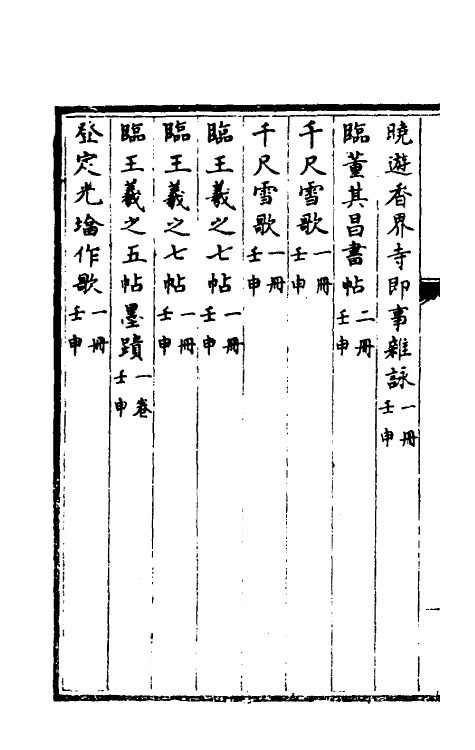 曉遊香界寺即事雜詠一冊壬申
臨董其昌書帖二冊壬申
千尺雪歌一冊壬申
千尺雪歌一冊壬申
臨王羲之七帖一冊壬申
臨王羲之七帖一冊壬申
臨王羲之五帖墨蹟一卷壬申
登定光塔作歌一冊壬申